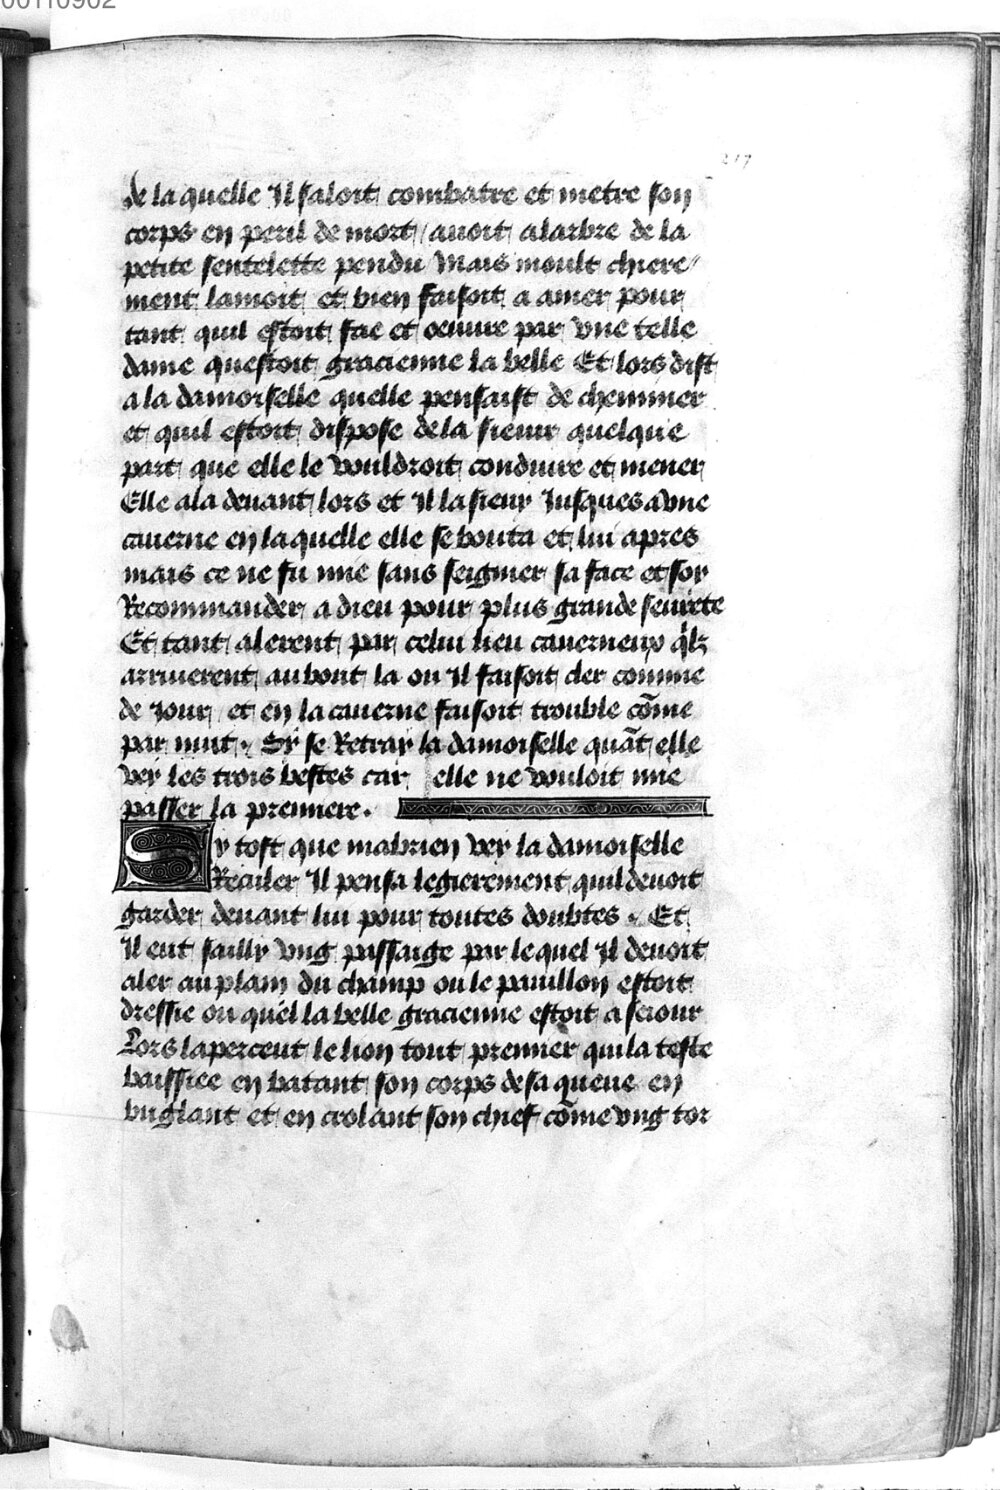 00110902
217
de la quelle Il saloit combatre et metre son
corps en peril de mort / auoit a larbre de la
petite sentelette pendu Mais moult chiere
ment lamoit et bien faisoit a amer pour
tant quil estoit fae et oeuure par vne telle
dame questoit gracienne la belle Et lors dist
a la damoiselle quelle pensaist de cheminer
et quil estoit dispose de la sieuir quelque
part que elle le vouldroit conduire et mener
Elle ala deuant lors et Il la sieuy Jusques a vne
cauerne en la quelle elle se bouta et lui apres
mais ce ne fu mie sans seignier sa face et soy
Recommander a dieu pour plus grande seurete
Et tant alerent par celui lieu cauerneux qlz
arriuerent au bout la ou Il faisoit cler comme
de Jour et en la cauerne faisoit trouble cõme
par nuit. Sy se Retray la damoiselle quãt elle
vey les trois bestes car elle ne vouloit mie
passer la premiere.
Sy tost que mabrien vey la damoiselle
Reculer Il pensa legierement quil deuoit
garder deuant lui pour toutes doubtes. Et
Il eut sailly vng passaige par le quel Il deuoit
aler au plain du champ ou le pauillon estoit
dressie ou quel la belle gracienne estoit a seiour
Lors lapperceut le lion tout premier qui la teste
baissiee en batant son corps de sa queue en
buglant et en crolant son chief cõme vng tor